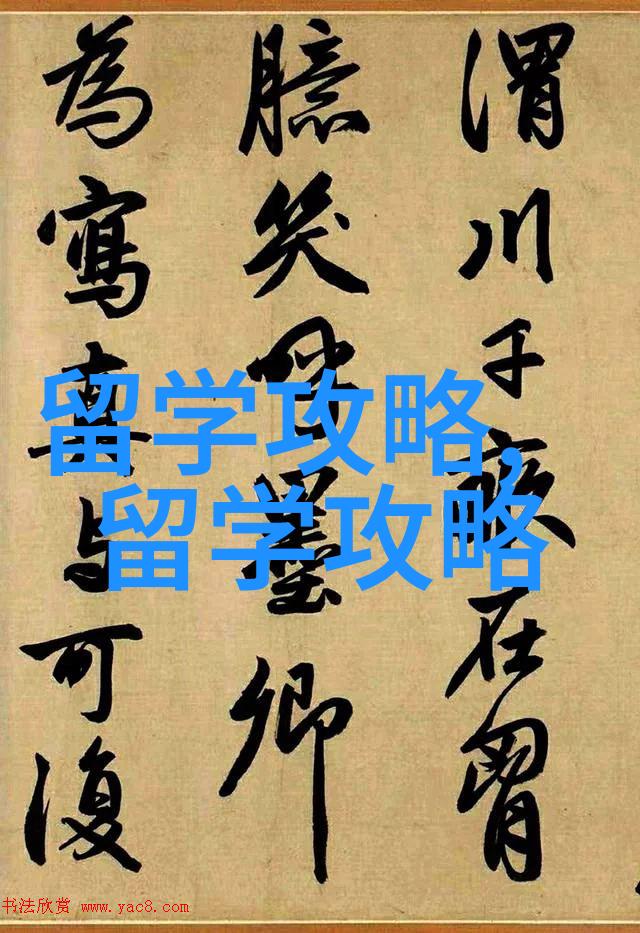 渭川千畝在胷
臆笑呼墨卿
為寫真与可復
留学攻略,
留学攻略
书法欣赏 www.yac8.com